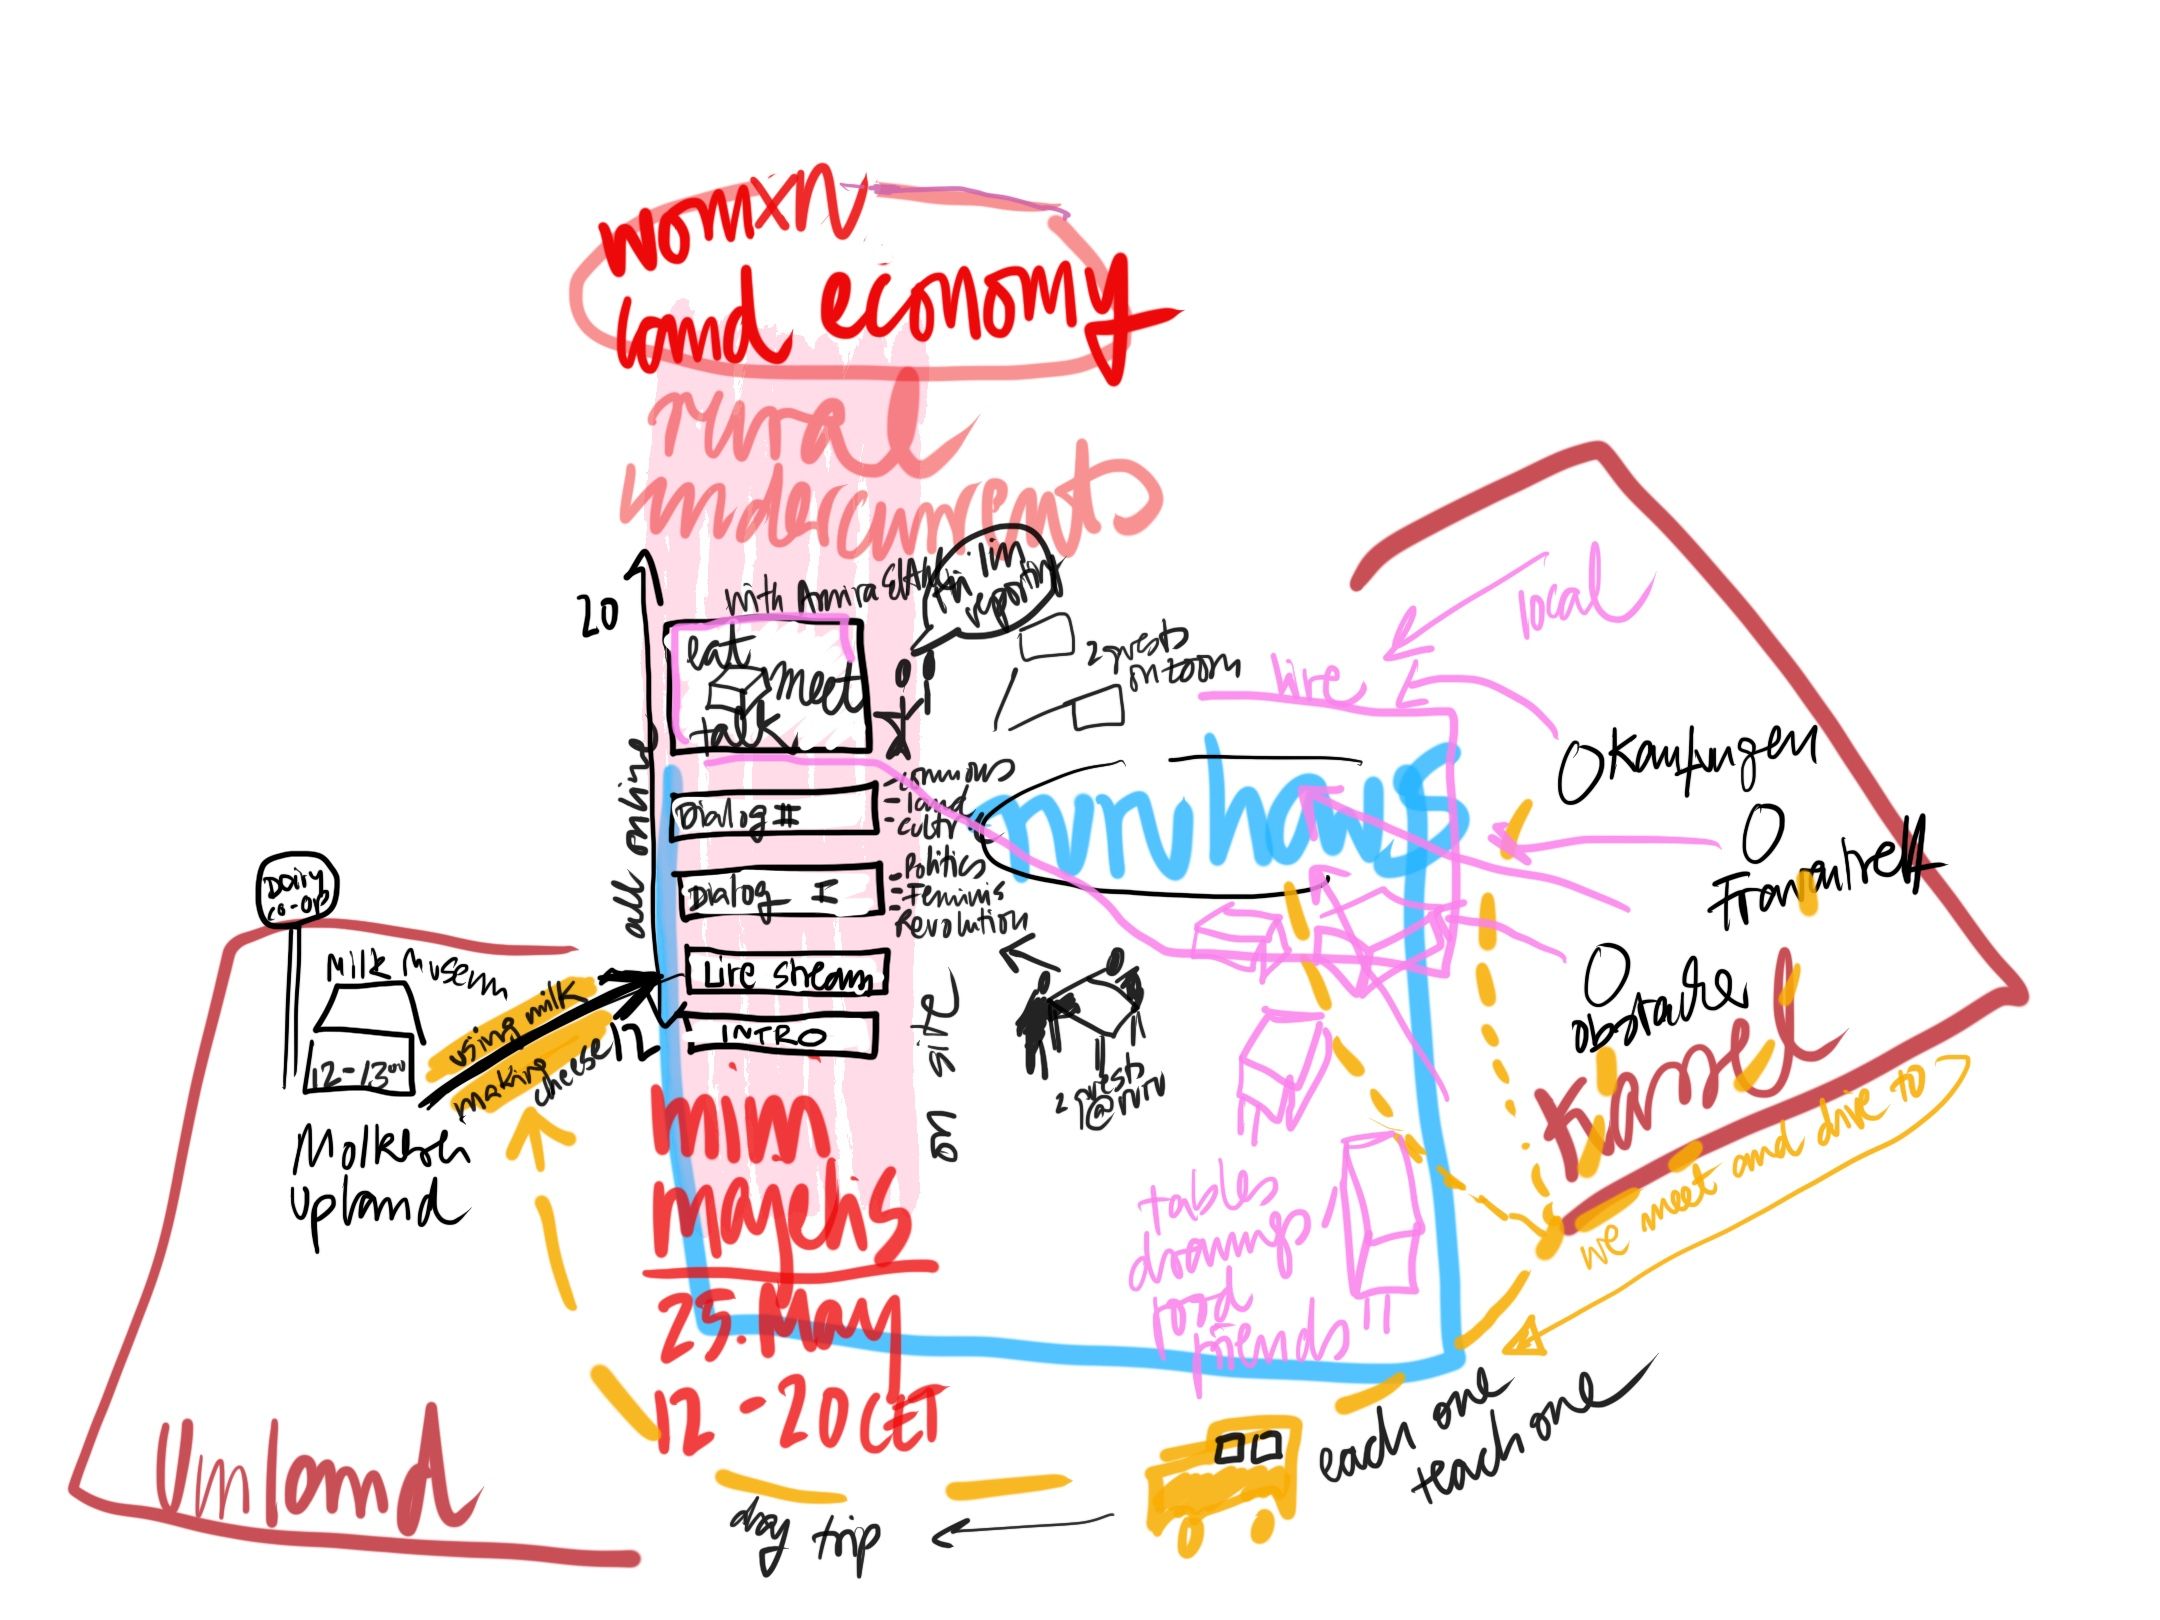 womxn
land economy
rural
undercurrents
with Amira
lin
reporting
20
eat
meet
talk
2 guests
on zoom
local
all online
Dialog II
- commons
- land
- cultr
ruruhaus
Dialog I
- Politics
- Feminis
Revolution
Live stream
INTRO
12
on site
2 guests
@ruru
Kaufungen
Kassel
Dairy
co-op
Milk Museum
12-13⁰⁰
using milk
making
cheese
Upland
mim
25. May
12 - 20 CET
tables
drawings
food
friends
we meet and drive to
each one
teach one
day trip